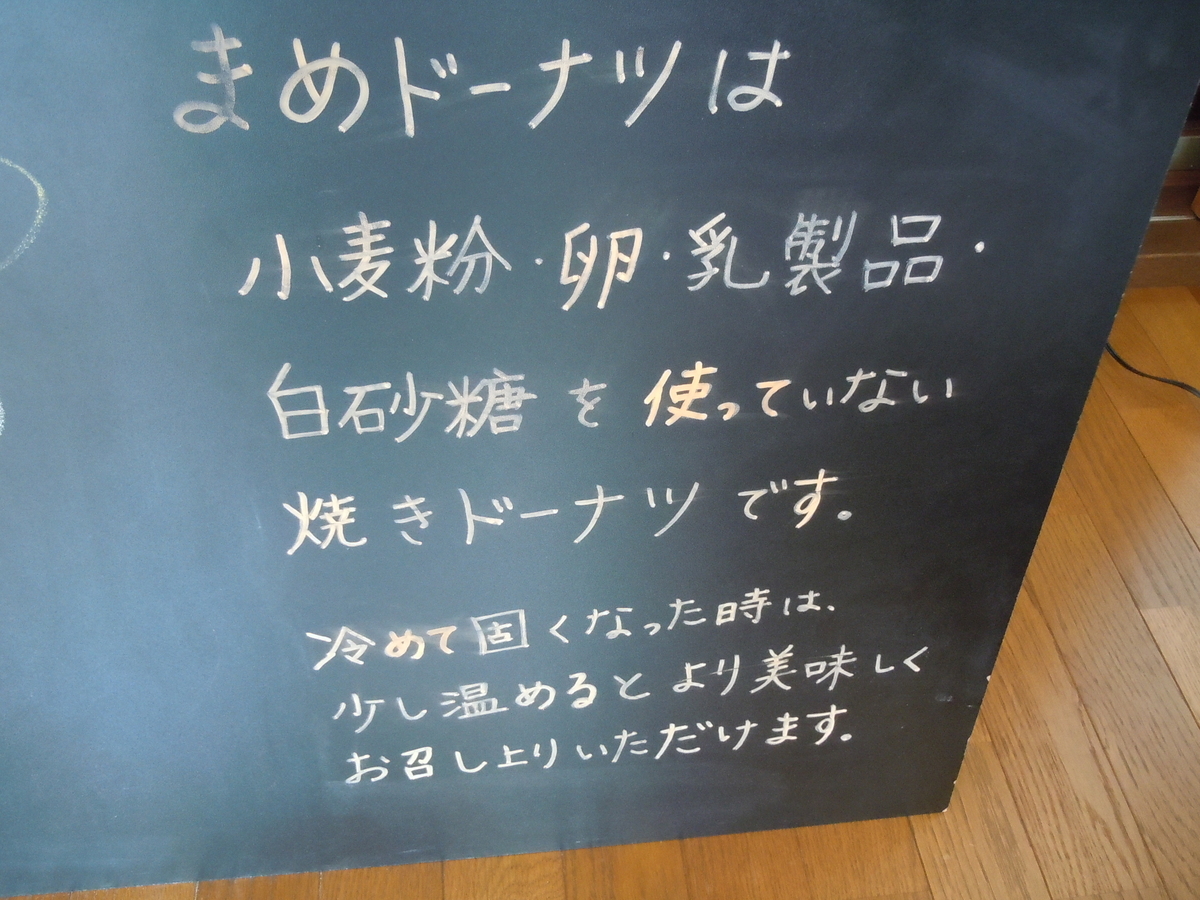 まめドーナツは
小麦粉・卵・乳製品・
白砂糖を使っていない
焼きドーナツです。
冷めて固くなった時は、
少し温めるとより美味しく
お召し上りいただけます。